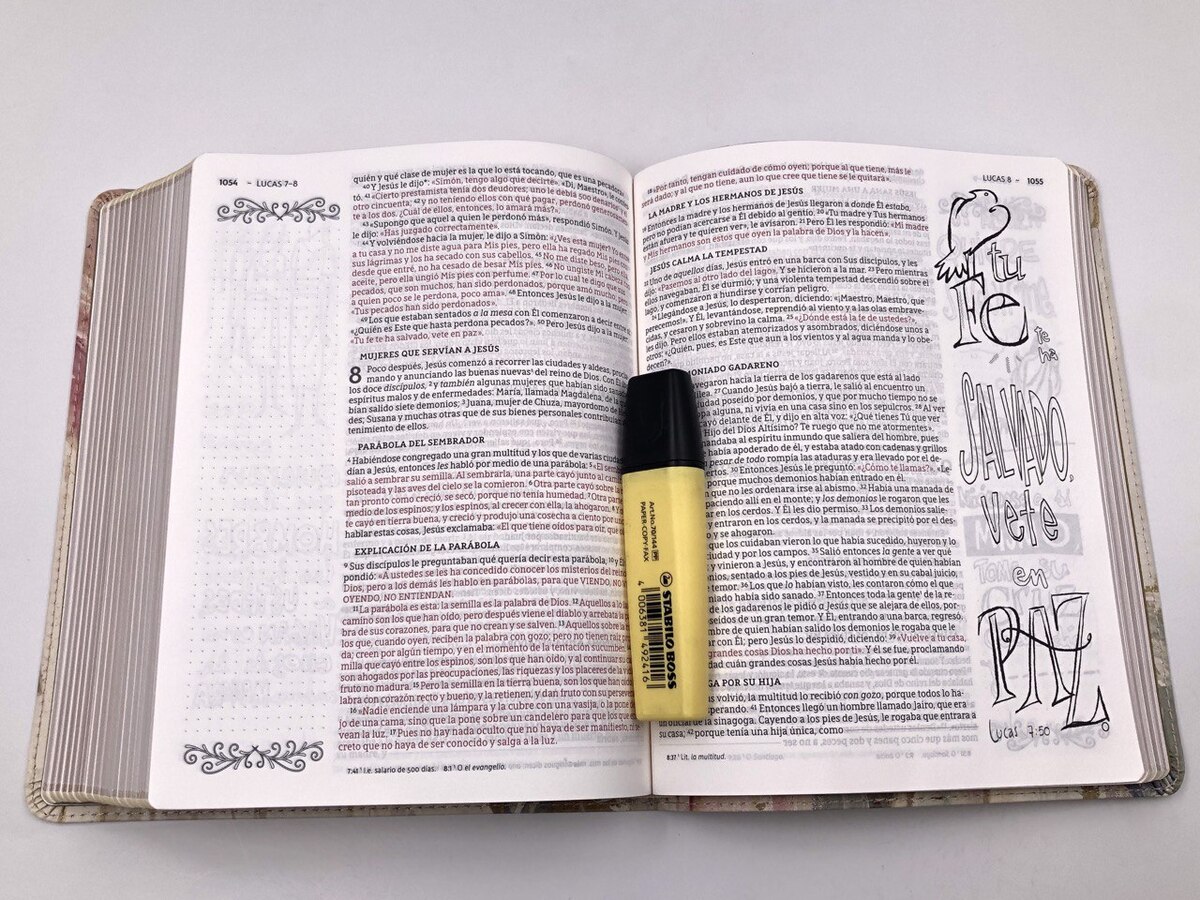 1054 – LUCAS 7–8
quién y qué clase de mujer es la que lo está tocando, que es una pecadora».
40 Y Jesús le dijo*: «Simón, tengo algo que decirte». «Di, Maestro», le
tó. 41 «Cierto prestamista tenía dos deudores; uno le debía 500 denarios y el
otro cincuenta; 42 y no teniendo ellos con qué pagar, perdonó generosamen-
te a los dos. ¿Cuál de ellos, entonces, lo amará más?».
43 «Supongo que aquel a quien le perdonó más», respondió Simón. Y Jesús
le dijo: «Has juzgado correctamente».
44 Y volviéndose hacia la mujer, le dijo a Simón: «¿Ves esta mujer? Yo entré
a tu casa y no me diste agua para Mis pies, pero ella ha regado Mis pies con
sus lágrimas y los ha secado con sus cabellos. 45 No me diste beso, pero ella
desde que entré, no ha cesado de besar Mis pies. 46 No ungiste Mi cabeza con
aceite, pero ella ungió Mis pies con perfume. 47 Por lo cual te digo que sus
pecados, que son muchos, han sido perdonados, porque amó mucho; pero
a quien poco se le perdona, poco ama». 48 Entonces Jesús le dijo a la mujer:
«Tus pecados han sido perdonados».
49 Los que estaban sentados a la mesa con Él comenzaron a decir entre sí:
«¿Quién es Este que hasta perdona pecados?». 50 Pero Jesús dijo a la mujer:
«Tu fe te ha salvado, vete en paz».
MUJERES QUE SERVÍAN A JESÚS
8 Poco después, Jesús comenzó a recorrer las ciudades y aldeas, procla-
mando y anunciando las buenas nuevas del reino de Dios. Con Él
los doce discípulos, 2 y también algunas mujeres que habían sido sanadas de
espíritus malos y de enfermedades: María, llamada Magdalena, de la
bían salido siete demonios; 3 Juana, mujer de Chuza, mayordomo de
des; Susana y muchas otras que de sus bienes personales contribuían
tenimiento de ellos.
PARÁBOLA DEL SEMBRADOR
4 Habiéndose congregado una gran multitud y los que de varias ciudades
dían a Jesús, entonces les habló por medio de una parábola: 5 «El sembrador
salió a sembrar su semilla. Al sembrarla, una parte cayó junto al camino
pisoteada y las aves del cielo se la comieron. 6 Otra parte cayó sobre la
tan pronto como creció, se secó, porque no tenía humedad. 7 Otra parte
medio de los espinos; y los espinos, al crecer con ella, la ahogaron. 8 Y
te cayó en tierra buena, y creció y produjo una cosecha a ciento por uno».
hablar estas cosas, Jesús exclamaba: «El que tiene oídos para oír, que
EXPLICACIÓN DE LA PARÁBOLA
9 Sus discípulos le preguntaban qué quería decir esta parábola; 10 y Él
pondió: «A ustedes se les ha concedido conocer los misterios del reino
Dios, pero a los demás les hablo en parábolas, para que VIENDO, NO
OYENDO, NO ENTIENDAN.
11 La parábola es esta: la semilla es la palabra de Dios. 12 Aquellos a lo
camino son los que han oído, pero después viene el diablo y arrebata la
bra de sus corazones, para que no crean y se salven. 13 Aquellos sobre
los que, cuando oyen, reciben la palabra con gozo; pero no tienen raíz
da; creen por algún tiempo, y en el momento de la tentación sucumben.
milla que cayó entre los espinos, son los que han oído, y al continuar su
son ahogados por las preocupaciones, las riquezas y los placeres de la vida
fruto no madura. 15 Pero la semilla en la tierra buena, son los que han oído
labra con corazón recto y bueno, y la retienen, y dan fruto con su perseverancia.
16 «Nadie enciende una lámpara y la cubre con una vasija, o la pone de
jo de una cama, sino que la pone sobre un candelero para que los que
vean la luz. 17 Pues no hay nada oculto que no haya de ser manifiesto, ni se-
creto que no haya de ser conocido y salga a la luz.
7:41 i.e. salario de 500 días. 8:1 O el evangelio.
LUCAS 8 – 1055
18 «Por tanto, tengan cuidado de cómo oyen; porque al que tiene, más le
será dado; y al que no tiene, aun lo que cree que tiene se le quitará».
LA MADRE Y LOS HERMANOS DE JESÚS
19 Entonces la madre y los hermanos de Jesús llegaron a donde Él estaba,
pero no podían acercarse a Él debido al gentío. 20 «Tu madre y Tus hermanos
están afuera y te quieren ver», le avisaron. 21 Pero Él les respondió: «Mi madre
y Mis hermanos son estos que oyen la palabra de Dios y la hacen».
JESÚS CALMA LA TEMPESTAD
22 Uno de aquellos días, Jesús entró en una barca con Sus discípulos, y les
dijo: «Pasemos al otro lado del lago». Y se hicieron a la mar. 23 Pero mientras
ellos navegaban, Él se durmió; y una violenta tempestad descendió sobre el
lago, y comenzaron a hundirse y corrían peligro.
24 Llegándose a Jesús, lo despertaron, diciendo: «¡Maestro, Maestro, que
perecemos!». Y Él, levantándose, reprendió al viento y a las olas embrave-
cidas, y cesaron y sobrevino la calma. 25 «¿Dónde está la fe de ustedes?»,
les dijo. Pero ellos estaban atemorizados y asombrados, diciéndose unos a
otros: «¿Quién, pues, es Este que aun a los vientos y al agua manda y lo obe-
decen?».
MONIADO GADARENO
vegaron hacia la tierra de los gadarenos que está al lado
ilea. 27 Cuando Jesús bajó a tierra, le salió al encuentro un
udad poseído por demonios, y que por mucho tiempo no se
pa alguna, ni vivía en una casa sino en los sepulcros. 28 Al ver
cayó delante de Él, y dijo en alta voz: «¿Qué tienes Tú que ver
Hijo del Dios Altísimo? Te ruego que no me atormentes».
mandaba al espíritu inmundo que saliera del hombre, pues
e había apoderado de él, y estaba atado con cadenas y grillos
a pesar de todo rompía las ataduras y era llevado por el de-
ertos. 30 Entonces Jesús le preguntó: «¿Cómo te llamas?». «Le-
porque muchos demonios habían entrado en él.
que no les ordenara irse al abismo. 32 Había una manada de
paciendo allí en el monte; y los demonios le rogaron que les
en los cerdos. Y Él les dio permiso. 33 Los demonios salie-
entraron en los cerdos, y la manada se precipitó por el des-
y se ahogaron.
que los cuidaban vieron lo que había sucedido, huyeron y lo
ciudad y por los campos. 35 Salió entonces la gente a ver qué
y vinieron a Jesús, y encontraron al hombre de quien habían
onios, sentado a los pies de Jesús, vestido y en su cabal juicio,
e temor. 36 Los que lo habían visto, les contaron cómo el que
moniado había sido sanado. 37 Entonces toda la gente de la re-
de los gadarenos le pidió a Jesús que se alejara de ellos, por-
seídos de un gran temor. Y Él, entrando a una barca, regresó.
mbre de quien habían salido los demonios le rogaba que le
con Él; pero Jesús lo despidió, diciendo: 39 «Vuelve a tu casa,
grandes cosas Dios ha hecho por ti». Y él se fue, proclamando
dad cuán grandes cosas Jesús había hecho por él.
GA POR SU HIJA
volvió, la multitud lo recibió con gozo, porque todos lo ha-
perando. 41 Entonces llegó un hombre llamado Jairo, que era
un oficial de la sinagoga. Cayendo a los pies de Jesús, le rogaba que entrara a
su casa; 42 porque tenía una hija única, como
8:37 Lit. la multitud.
tu
Fe
te
ha
SALVADO,
vete
en
PAZ.
Lucas 7:50
Art.No. 70/144
PAPER-COPY-FAX
STABILO BOSS
4 006381 492416